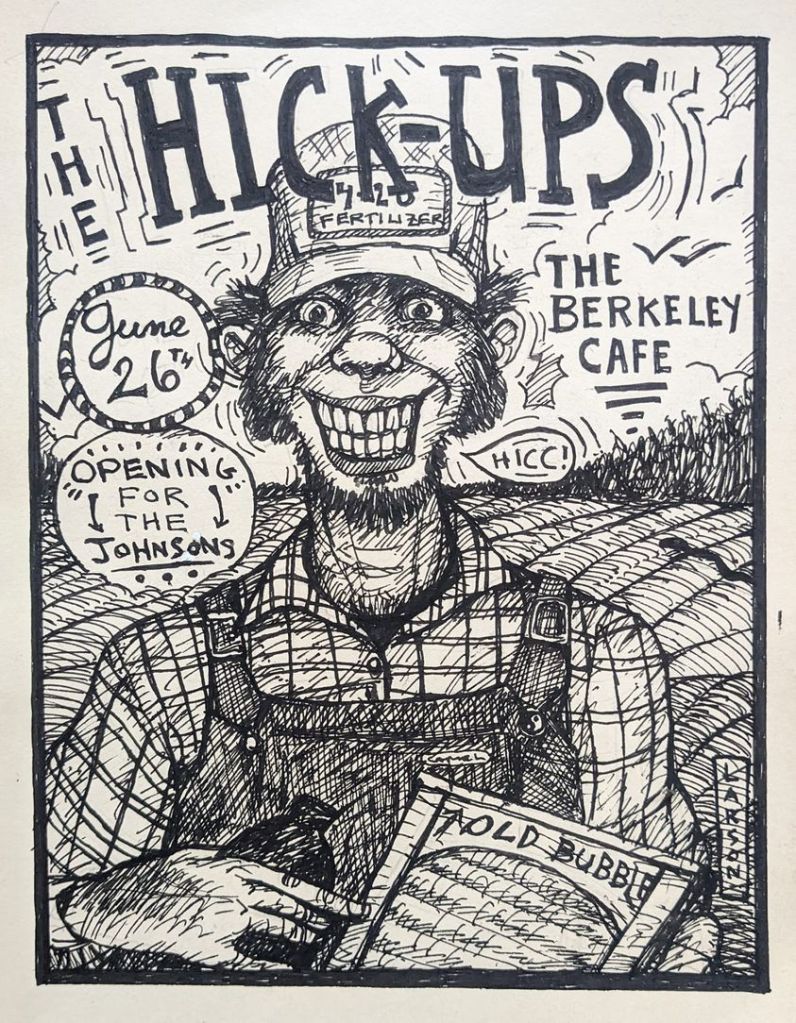 THE
HICK-UPS
4-20
FERTILIZER
THE
BERKELEY
CAFE
June
26TH
HICC!
OPENING
FOR
THE
JOHNSONS
OLD BUBBLE
LARSON